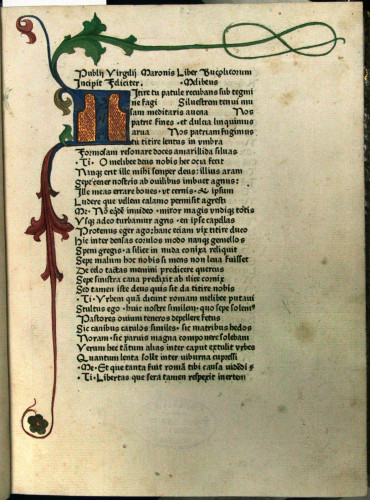 Publij Virgilij Maronis Liber Bucolicorum
Incipit Feliciter. Melibeus
Itire tu patule recubans sub tegmi
ne fagi Siluestrem tenui mu
sam meditaris auena Nos
patrie fines et dulcia linquimus
arua Nos patriam fugimus
tu titire lentus in vmbra
Formosam resonare doces amarillida siluas
Ti. O melibee deus nobis hec ocia fecit
Nanqz erit ille mihi semper deus: illius aram
Sepe tener nostris ab ouilibus imbuet agnus:
Ille meas errare boues. vt cernis. & ipsum
Ludere que vellem calamo permisit agresti
Me. No eqde inuideo. miror magis vndiqz totis
Vsqz adeo turbamur agris. en ipse capellas
Protenus eger ago: hanc etiam vix titire duco
Hic inter densas corulos modo nanqz gemellos
Spem gregis. a silice in nuda conixa reliquit
Sepe malum hoc nobis si mens non leua fuisset
De celo tactas memini predicere quercus
Sepe sinistra caua predixit ab ilice cornix
Sed tamen iste deus quis sit da titire nobis
Ti. Vrbem qua dicunt romam melibee putaui
Stultus ego. huic nostre similem. quo sepe solem
Pastores ouium teneros depellere fetus
Sic canibus catulos similes. sic matribus hedos
Noram. sic paruis magna componere solebam
Verum hec tatum alias inter caput extulit vrbes
Quantum lenta solet inter uiburna cupressi
Me. Et que tanta fuit roma tibi causa videdi
Ti. Libertas que sera tamen respexit inertem